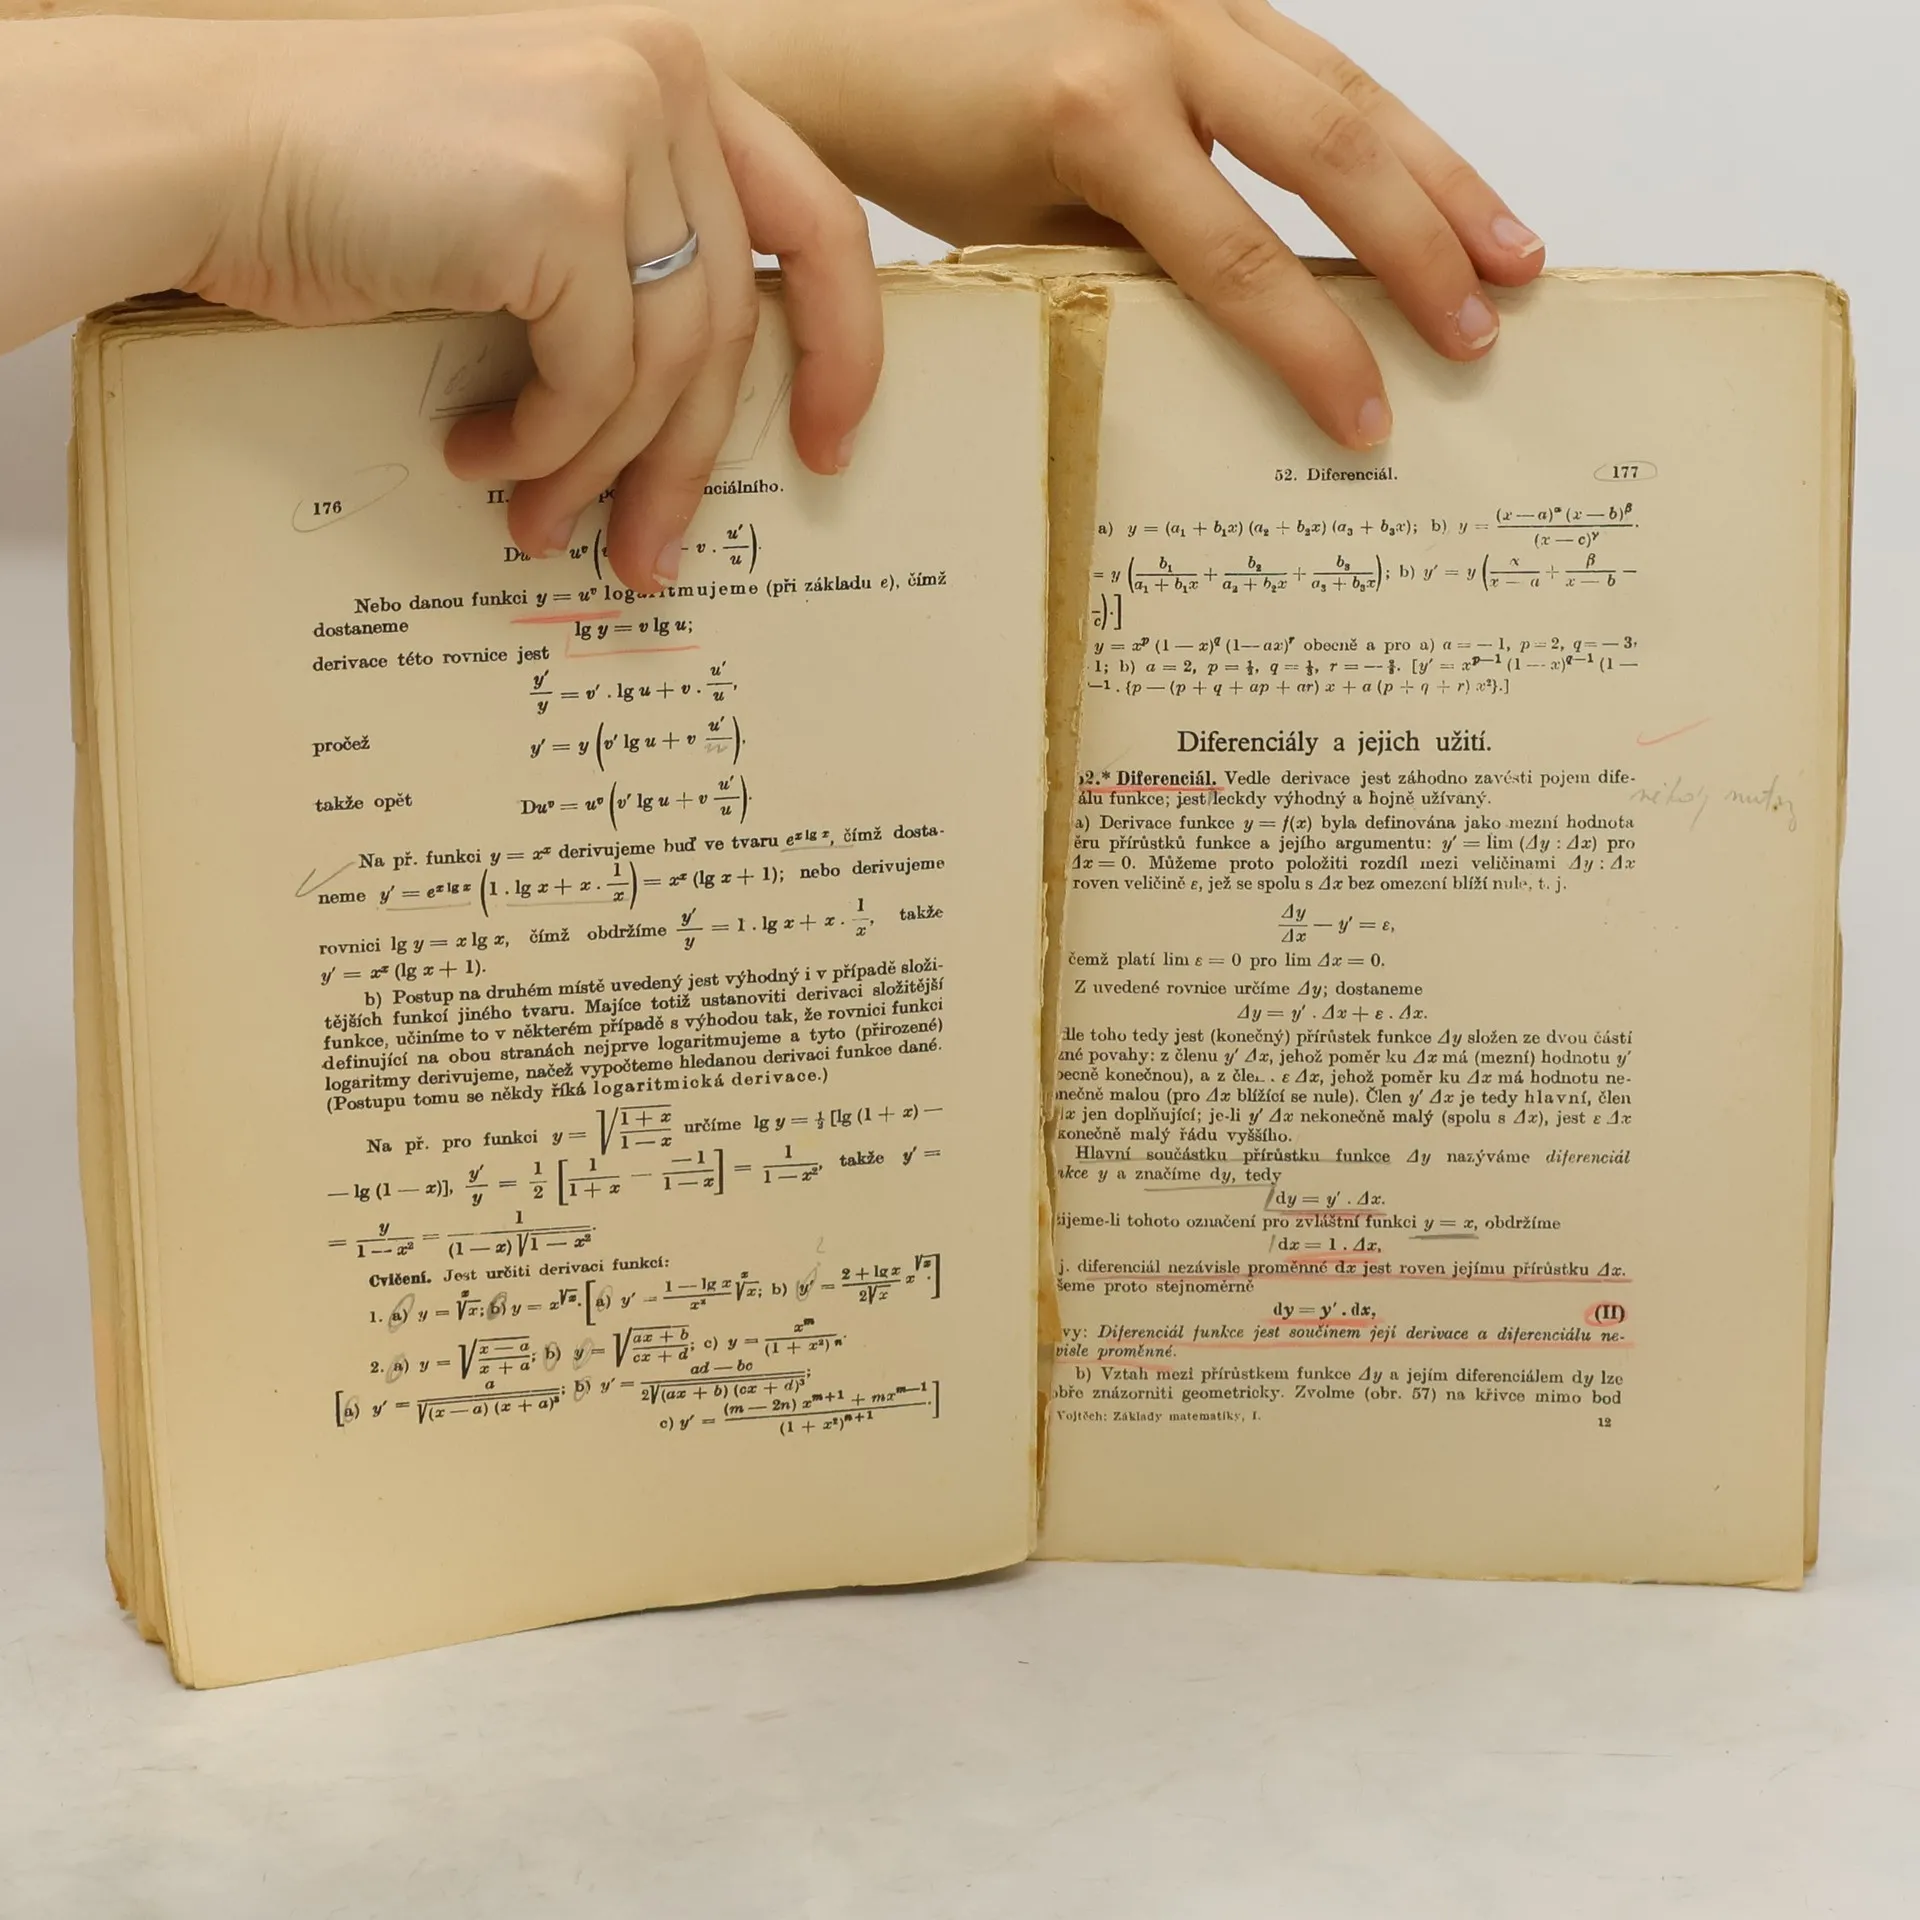 176
II. nciálního.
Nebo danou funkci y = uᵛ logaritmujeme (při základu e), čímž
dostaneme lg y = v lg u;
derivace této rovnice jest
y′/y = v′ . lg u + v . u′/u,
pročež y′ = y (v′ lg u + v u′/u),
takže opět Duᵛ = uᵛ (v′ lg u + v u′/u).
Na př. funkci y = xˣ derivujeme buď ve tvaru eˣ ˡᵍ ˣ, čímž dosta-
neme y′ = eˣ ˡᵍ ˣ (1 . lg x + x . 1/x) = xˣ (lg x + 1); nebo derivujeme
rovnici lg y = x lg x, čímž obdržíme y′/y = 1 . lg x + x . 1/x, takže
y′ = xˣ (lg x + 1).
b) Postup na druhém místě uvedený jest výhodný i v případě složi-
tějších funkcí jiného tvaru. Majíce totiž ustanoviti derivaci složitější
funkce, učiníme to v některém případě s výhodou tak, že rovnici funkci
definující na obou stranách nejprve logaritmujeme a tyto (přirozené)
logaritmy derivujeme, načež vypočteme hledanou derivaci funkce dané.
(Postupu tomu se někdy říká logaritmická derivace.)
Na př. pro funkci y = √((1 + x)/(1 — x)) určíme lg y = ½ [lg (1 + x) —
— lg (1 — x)], y′/y = 1/2 [1/(1 + x) — —1/(1 — x)] = 1/(1 — x²), takže y′ =
= y/(1 — x²) = 1/((1 — x) √(1 — x²)).
Cvičení. Jest určiti derivaci funkcí:
1. a) y = ˣ√x; b) y = x^√x. [a) y′ = (1 — lg x)/x² ˣ√x; b) y′ = (2 + lg x)/(2√x) x^√x.]
2. a) y = √((x — a)/(x + a)); b) y = √((ax + b)/(cx + d)); c) y = xᵐ/(1 + x²)ⁿ.
[a) y′ = a/√((x — a) (x + a)³); b) y′ = (ad — bc)/(2√((ax + b) (cx + d)³));
c) y′ = ((m — 2n) xᵐ⁺¹ + mxᵐ⁻¹)/(1 + x²)ⁿ⁺¹.]
52. Diferenciál. 177
a) y = (a₁ + b₁x) (a₂ + b₂x) (a₃ + b₃x); b) y = (x — a)^α (x — b)^β/(x — c)^γ.
= y (b₁/(a₁ + b₁x) + b₂/(a₂ + b₂x) + b₃/(a₃ + b₃x)); b) y′ = y (α/(x — a) + β/(x — b) —
c).]
y = xᵖ (1 — x)^q (1 — ax)ʳ obecně a pro a) a = — 1, p = 2, q = — 3,
1; b) a = 2, [y′ = xᵖ⁻¹ (1 — x)^(q—1) (1 —
—1 . {p — (p + q + ap + ar) x + a (p + q + r) x²}.]
Diferenciály a jejich užití.
52.* Diferenciál. Vedle derivace jest záhodno zavésti pojem dife-
álu funkce; jest leckdy výhodný a hojně užívaný.
a) Derivace funkce y = f(x) byla definována jako mezní hodnota
ěru přírůstků funkce a jejího argumentu: y′ = lim (Δy : Δx) pro
Δx = 0. Můžeme proto položiti rozdíl mezi veličinami Δy : Δx
roven veličině ε, jež se spolu s Δx bez omezení blíží nule, t. j.
Δy/Δx — y′ = ε,
čemž platí lim ε = 0 pro lim Δx = 0.
Z uvedené rovnice určíme Δy; dostaneme
Δy = y′ . Δx + ε . Δx.
dle toho tedy jest (konečný) přírůstek funkce Δy složen ze dvou částí
zné povahy: z členu y′ Δx, jehož poměr ku Δx má (mezní) hodnotu y′
ecně konečnou), a z ε Δx, jehož poměr ku Δx má hodnotu ne-
nečně malou (pro Δx blížící se nule). Člen y′ Δx je tedy hlavní, člen
Δx jen doplňující; je-li y′ Δx nekonečně malý (spolu s Δx), jest ε Δx
konečně malý řádu vyššího.
Hlavní součástku přírůstku funkce Δy nazýváme diferenciál
nkce y a značíme dy, tedy
dy = y′ . Δx.
žijeme-li tohoto označení pro zvláštní funkci y = x, obdržíme
dx = 1 . Δx,
j. diferenciál nezávisle proměnné dx jest roven jejímu přírůstku Δx.
šeme proto stejnoměrně
dy = y′ . dx, (II)
vy: Diferenciál funkce jest součinem její derivace a diferenciálu ne-
visle proměnné.
b) Vztah mezi přírůstkem funkce Δy a jejím diferenciálem dy lze
obře znázorniti geometricky. Zvolme (obr. 57) na křivce mimo bod
Vojtěch: Základy matematiky, I. 12